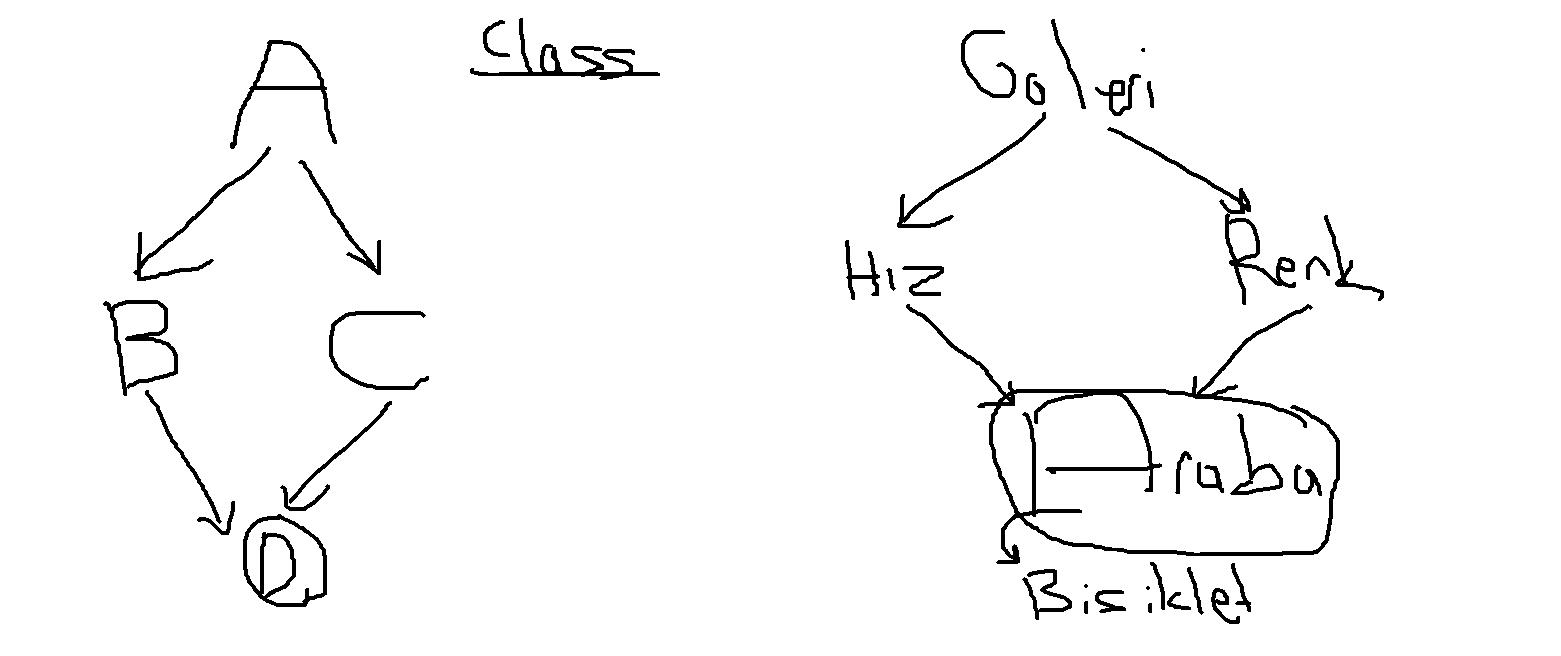 A
Class
Galeri
B
C
Hız
Renk
D
Araba
Bisiklet